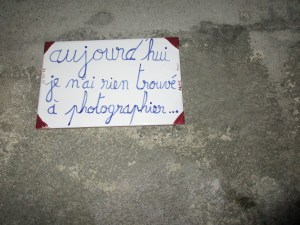 aujourd'hui
je n'ai rien trouvé
à photographier...